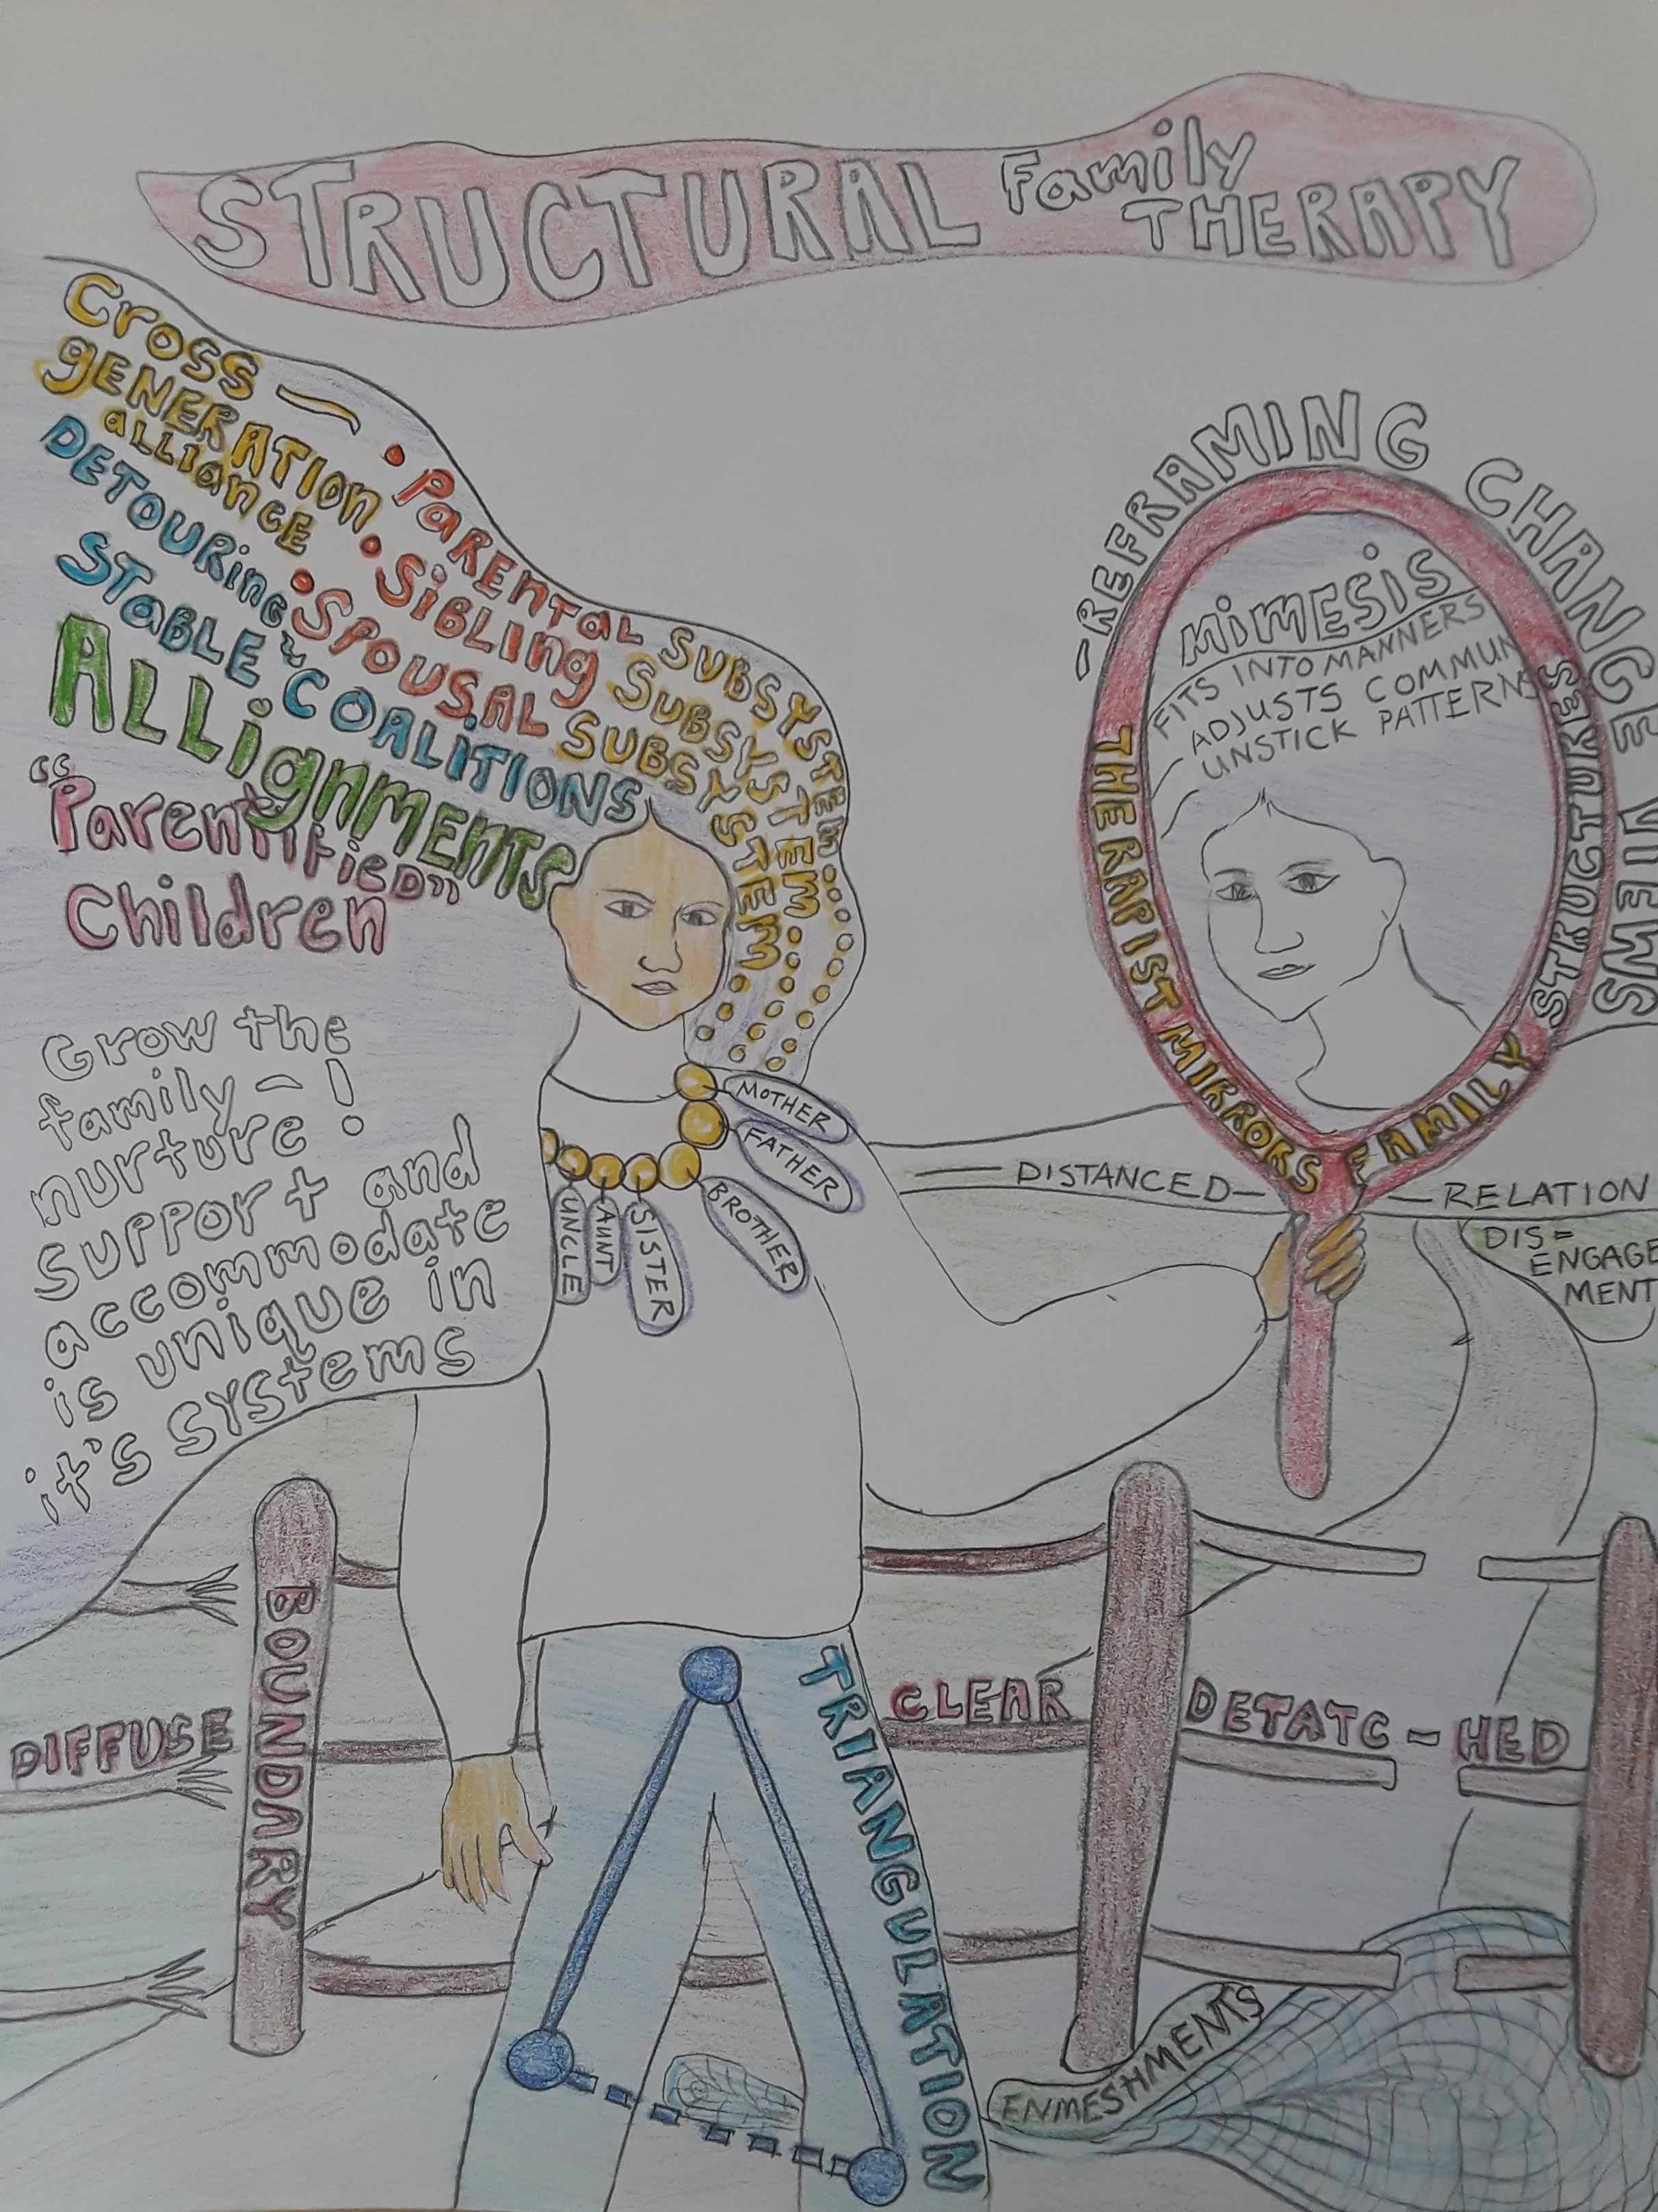 STRUCTURAL Family
THERAPY
Cross —
GENERATION
ALLIANCE
DETOURING ~
STABLE COALITIONS
• PARENTAL SUBSYSTEM
• SIBLING SUBSYSTEM
• SPOUSAL SUBSYSTEM
ALLIGNMENTS
"Parentified"
Children
Grow the
family -
nurture!
support and
accommodate
is unique in
it's systems
- REFRAMING CHANGE VIEWS
MIMESIS
FITS INTO MANNERS
ADJUSTS COMMUN
UNSTICK PATTERNS
THERAPIST MIRRORS FAMILY STRUCTURES
MOTHER
FATHER
BROTHER
SISTER
AUNT
UNCLE
— DISTANCED — — RELATION
DIS=
ENGAGE
MENT
BOUNDARY
DIFFUSE
CLEAR
DETATC - HED
TRIANGULATION
ENMESHMENTS